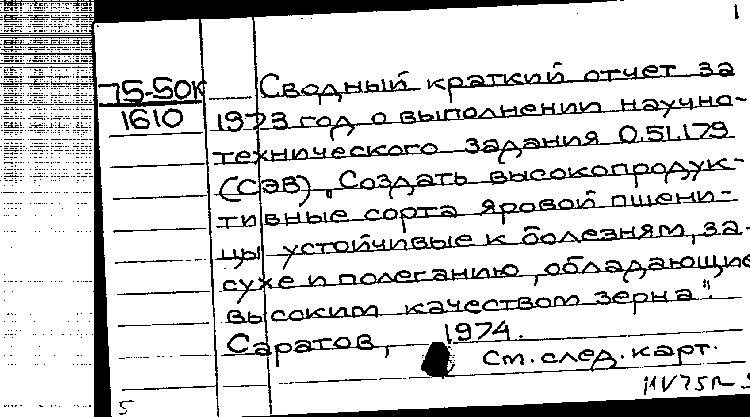 1
75-50К
1610
Сводный краткий отчет за
1973 год о выполнении научно-
технического задания 0.51.179
(СЭВ) „Создать высокопродук-
тивные сорта яровой пшени-
цы устойчивые к болезням, за-
сухе и полеганию, обладающие
высоким качеством зерна".
Саратов, 1974.
См. след. карт.
5